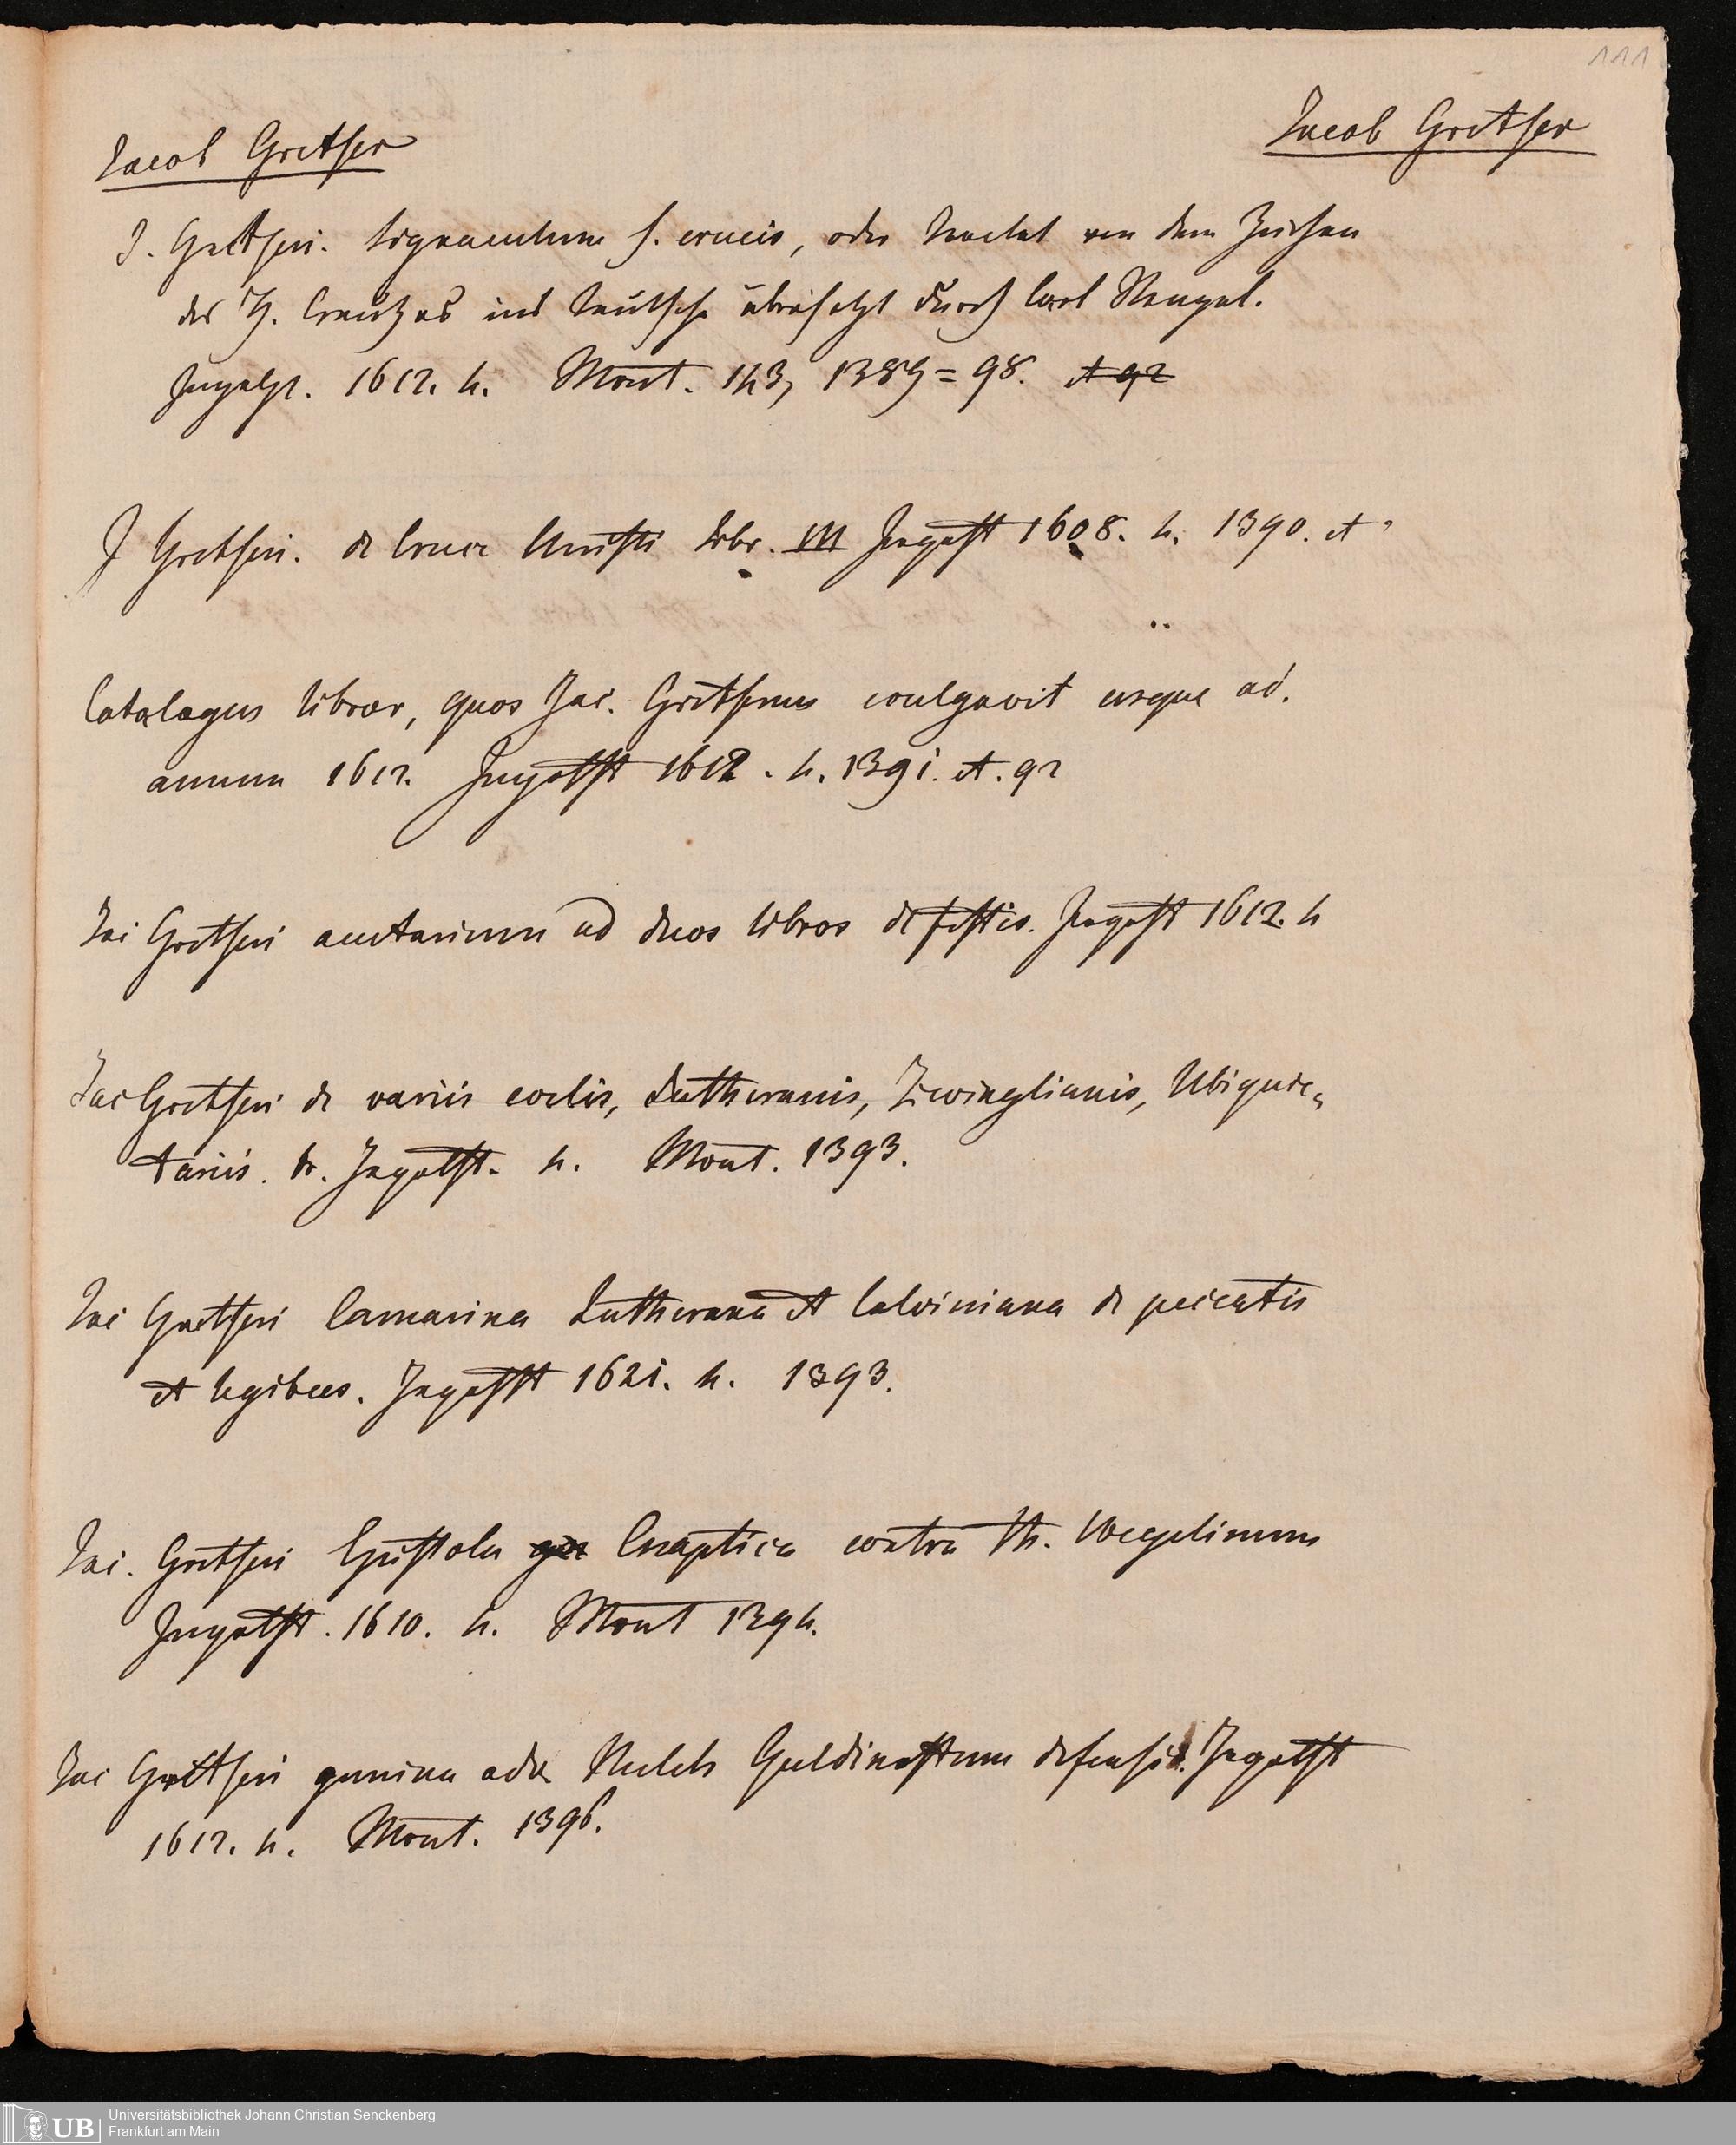 111
Jacob Gretser
Jacob Gretser
J. Gretseri. signaculum s. crucis, oder Tractat von dem Zeichen
des H. Creutzes ins Teutsche übersetzt durch Carl Stengel.
Ingolst. 1612. 4. Mont. 143, 1389=98. et 92
J Gretseri. de Cruce Christi Libr. III Ingolst 1608. 4. 1390. et
Catalogus libror, quos Jac. Gretserus evulgavit usque ad.
annum 1612. Ingolst 1612. 4. 1391. et. 92
Jac Gretseri auctarium ad duos libros de festis. Ingolst 1612. 4
Jac Gretseri de variis coelis, Lutheranis, Zwinglianis, Ubique„
tariis. Ingolst. 4. Mont. 1393.
Jac Gretseri Camarina Lutherana et Calviniana de peccatis
et legibus. Ingolst 1621. 4. 1393.
Jac. Gretseri Epistola Cnaptica contra Th. Wegelinum
Ingolst. 1610. 4. Mont 1394.
Jac Gretseri gemina adv. Melch Goldinastum defensio. Ingolst
1612. 4. Mont. 1396.
UB
Universitätsbibliothek Johann Christian Senckenberg
Frankfurt am Main